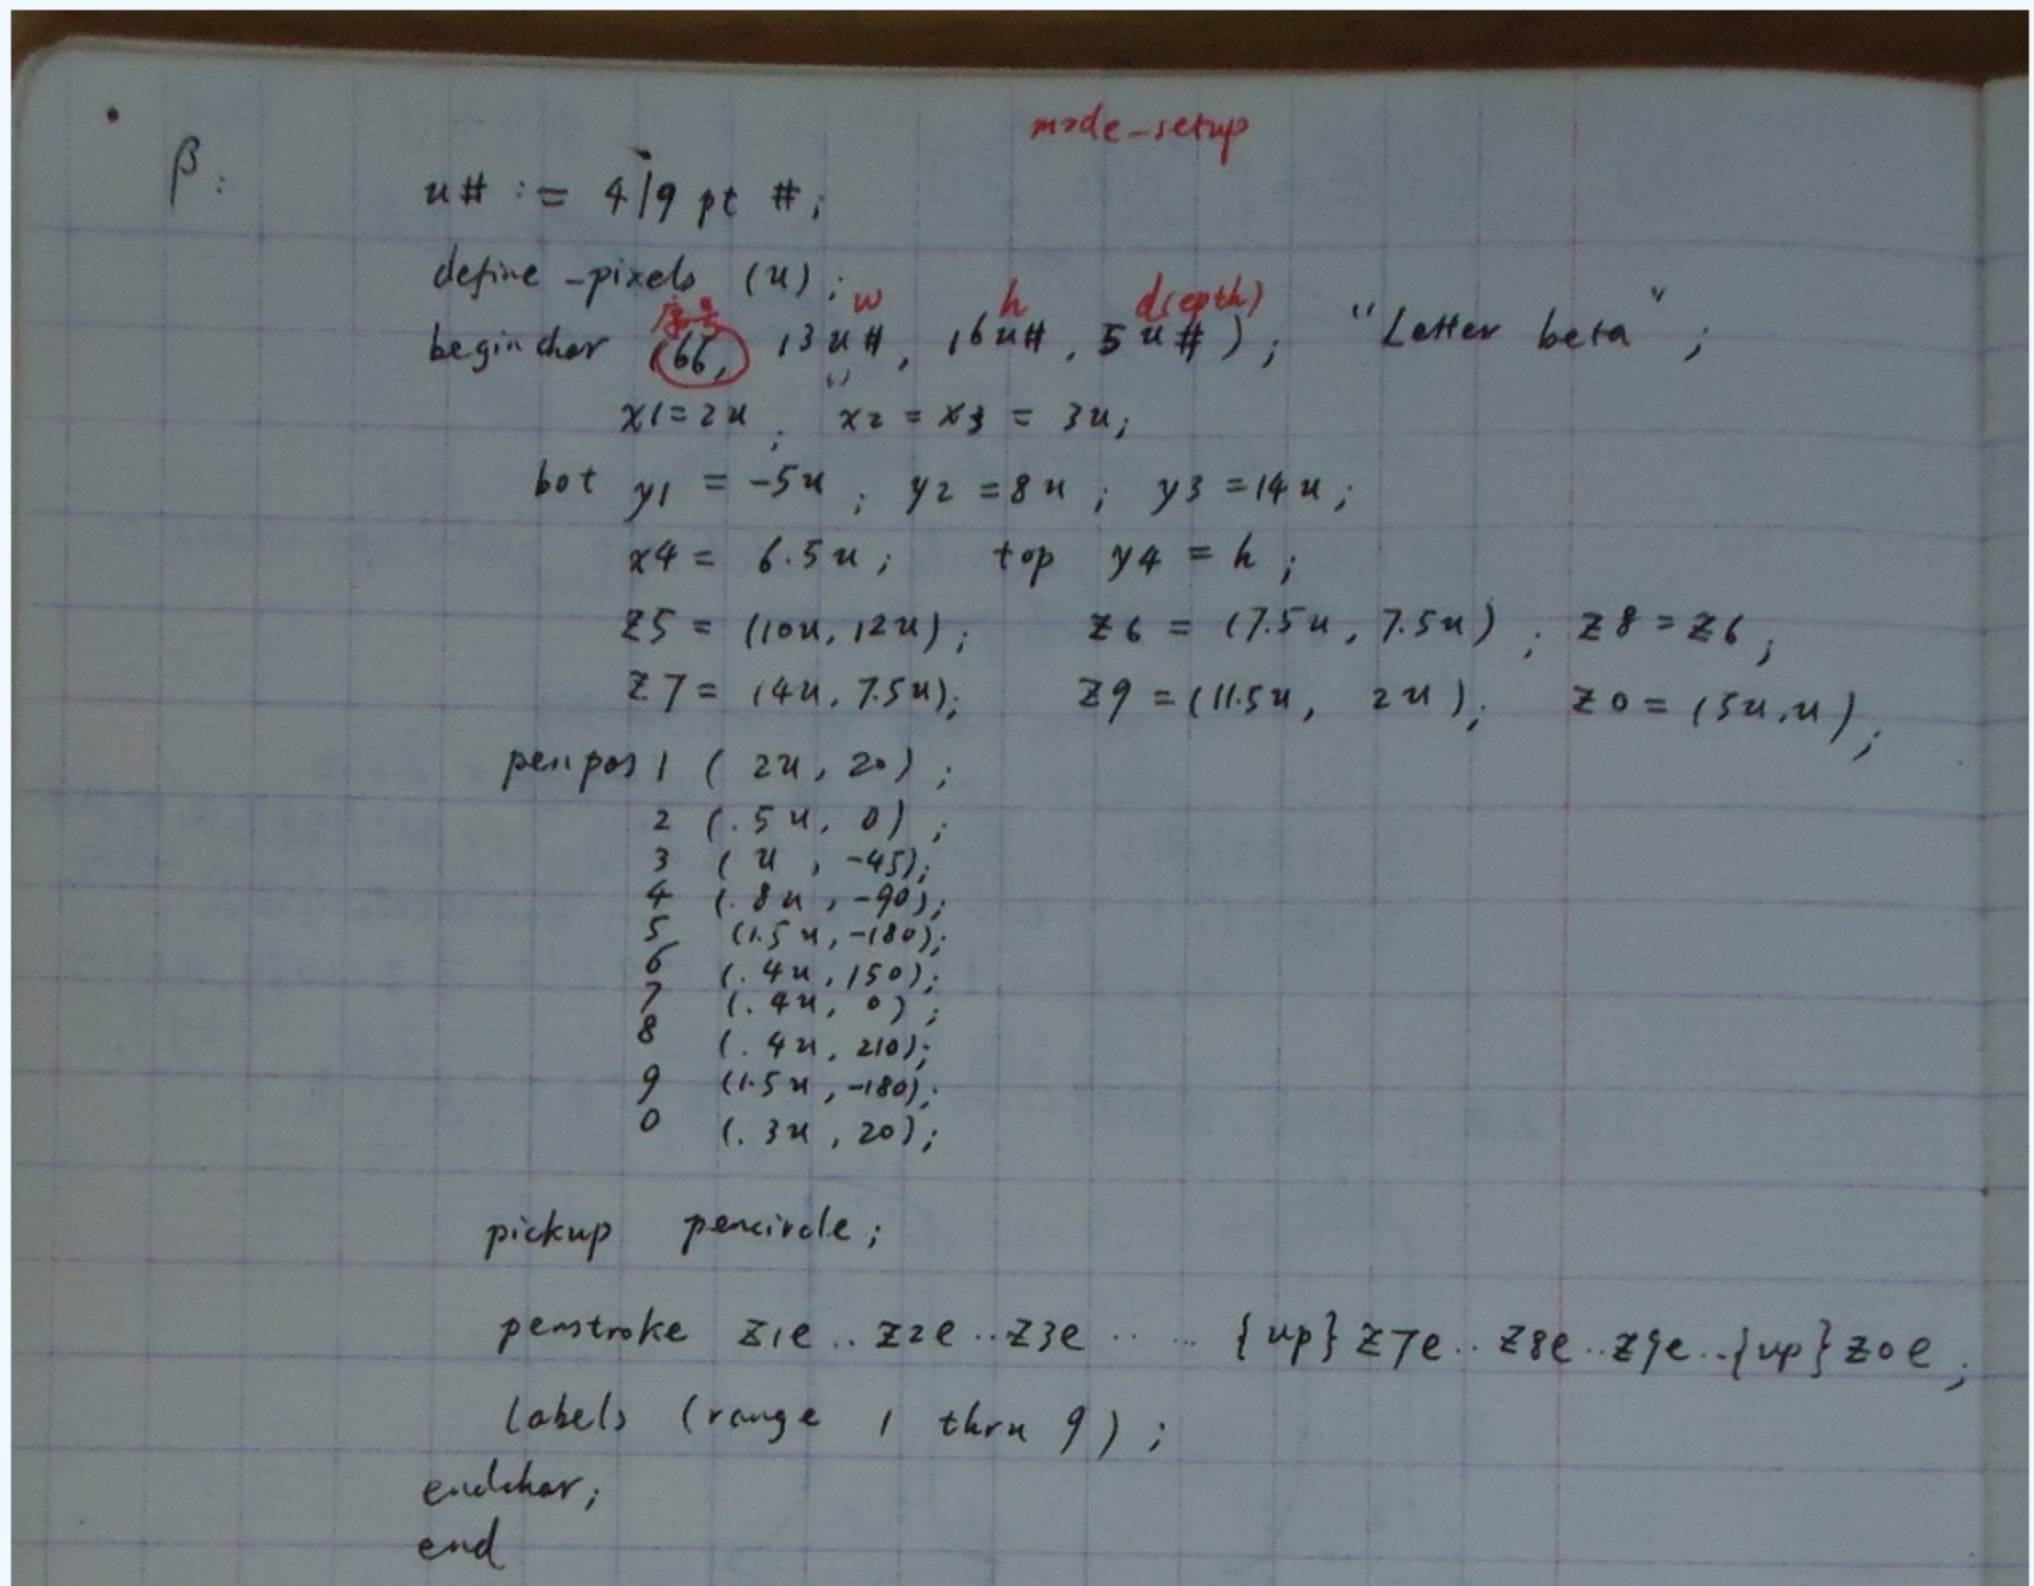 mode-setup
β:
u# := 4/9 pt #;
define -pixels (u);
序号 w h d(epth)
beginchar (66, 13u#, 16u#, 5u#); "Letter beta";
x1=2u; x2=x3=3u;
bot y1 = -5u; y2=8u; y3=14u;
x4= 6.5u; top y4 = h;
z5 = (10u, 12u); z6 = (7.5u, 7.5u); z8=z6;
z7= (4u, 7.5u); z9=(11.5u, 2u); z0=(5u,u);
penpos 1 (2u, 20);
2 (.5u, 0);
3 (u, -45);
4 (.8u, -90);
5 (1.5u, -180);
6 (.4u, 150);
7 (.4u, 0);
8 (.4u, 210);
9 (1.5u, -180);
0 (.3u, 20);
pickup pencircle;
penstroke z1e..z2e..z3e.. .. {up}z7e..z8e..z9e..{up}z0e;
labels (range 1 thru 9);
endchar;
end